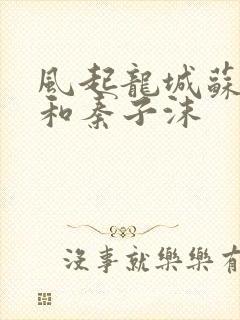 風起龍城蘇
和秦子沫
沒事就樂樂有